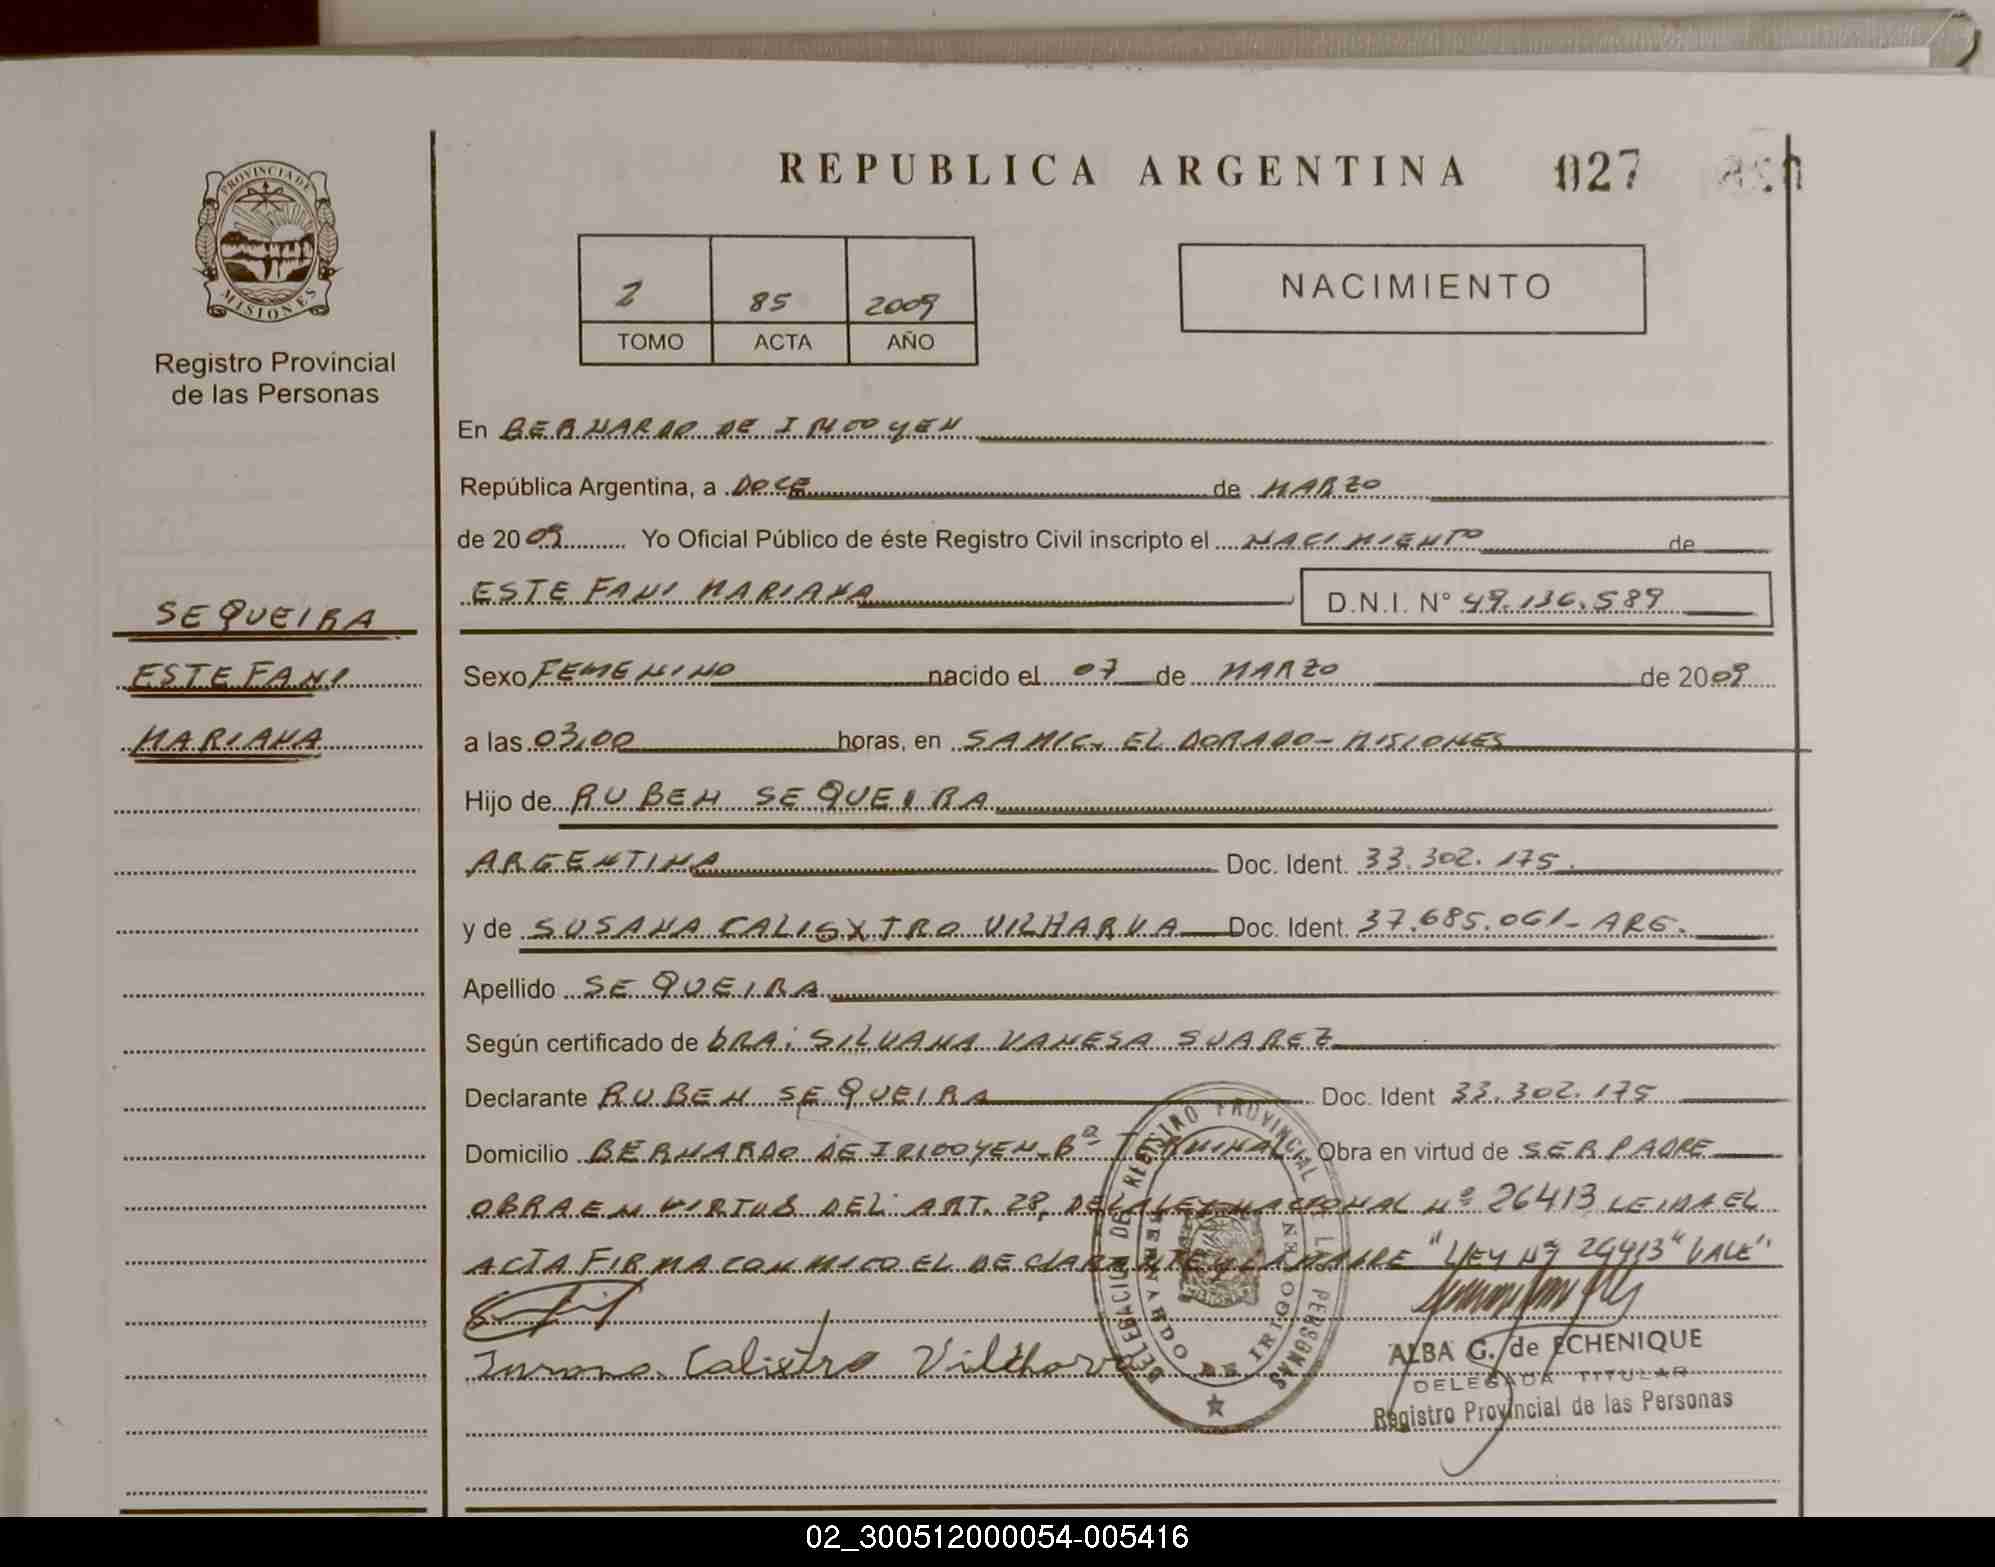 REPUBLICA ARGENTINA 027
PROVINCIA DE
MISIONES
Registro Provincial
de las Personas
2 85 2009
TOMO ACTA AÑO
NACIMIENTO
En BERNARDO DE IRIGOYEN
República Argentina, a DOCE de MARZO
de 2009 Yo Oficial Público de éste Registro Civil inscripto el NACIMIENTO de
ESTEFANI MARIANA D.N.I. N° 49.136.589
SEQUEIRA
ESTEFANI
MARIANA
Sexo FEMENINO nacido el 07 de MARZO de 2009
a las 03,00 horas, en SAMIC. ELDORADO-MISIONES
Hijo de RUBEN SEQUEIRA
ARGENTINA Doc. Ident. 33.302.175.
y de SUSANA CALISXTRO VILHARVA Doc. Ident. 37.685.061- ARG.
Apellido SEQUEIRA
Según certificado de DRA: SILVANA VANESA SUAREZ
Declarante RUBEN SEQUEIRA Doc. Ident 33.302.175
Domicilio BERNARDO DE IRIGOYEN-Bº TERMINAL Obra en virtud de SER PADRE
OBRA EN VIRTUD DEL ART. 28, DE LA LEY NACIONAL Nº 26413 LEIDA EL
ACTA FIRMA CONMIGO EL DECLARANTE Y LA MADRE "LEY Nº 26413" VALE"
Calistro Vilharva
DELEGACION DE REGISTRO PROVINCIAL DE LAS PERSONAS
BERNARDO DE IRIGOYEN
ALBA G. de ECHENIQUE
DELEGADA TITULAR
Registro Provincial de las Personas
02_300512000054-005416